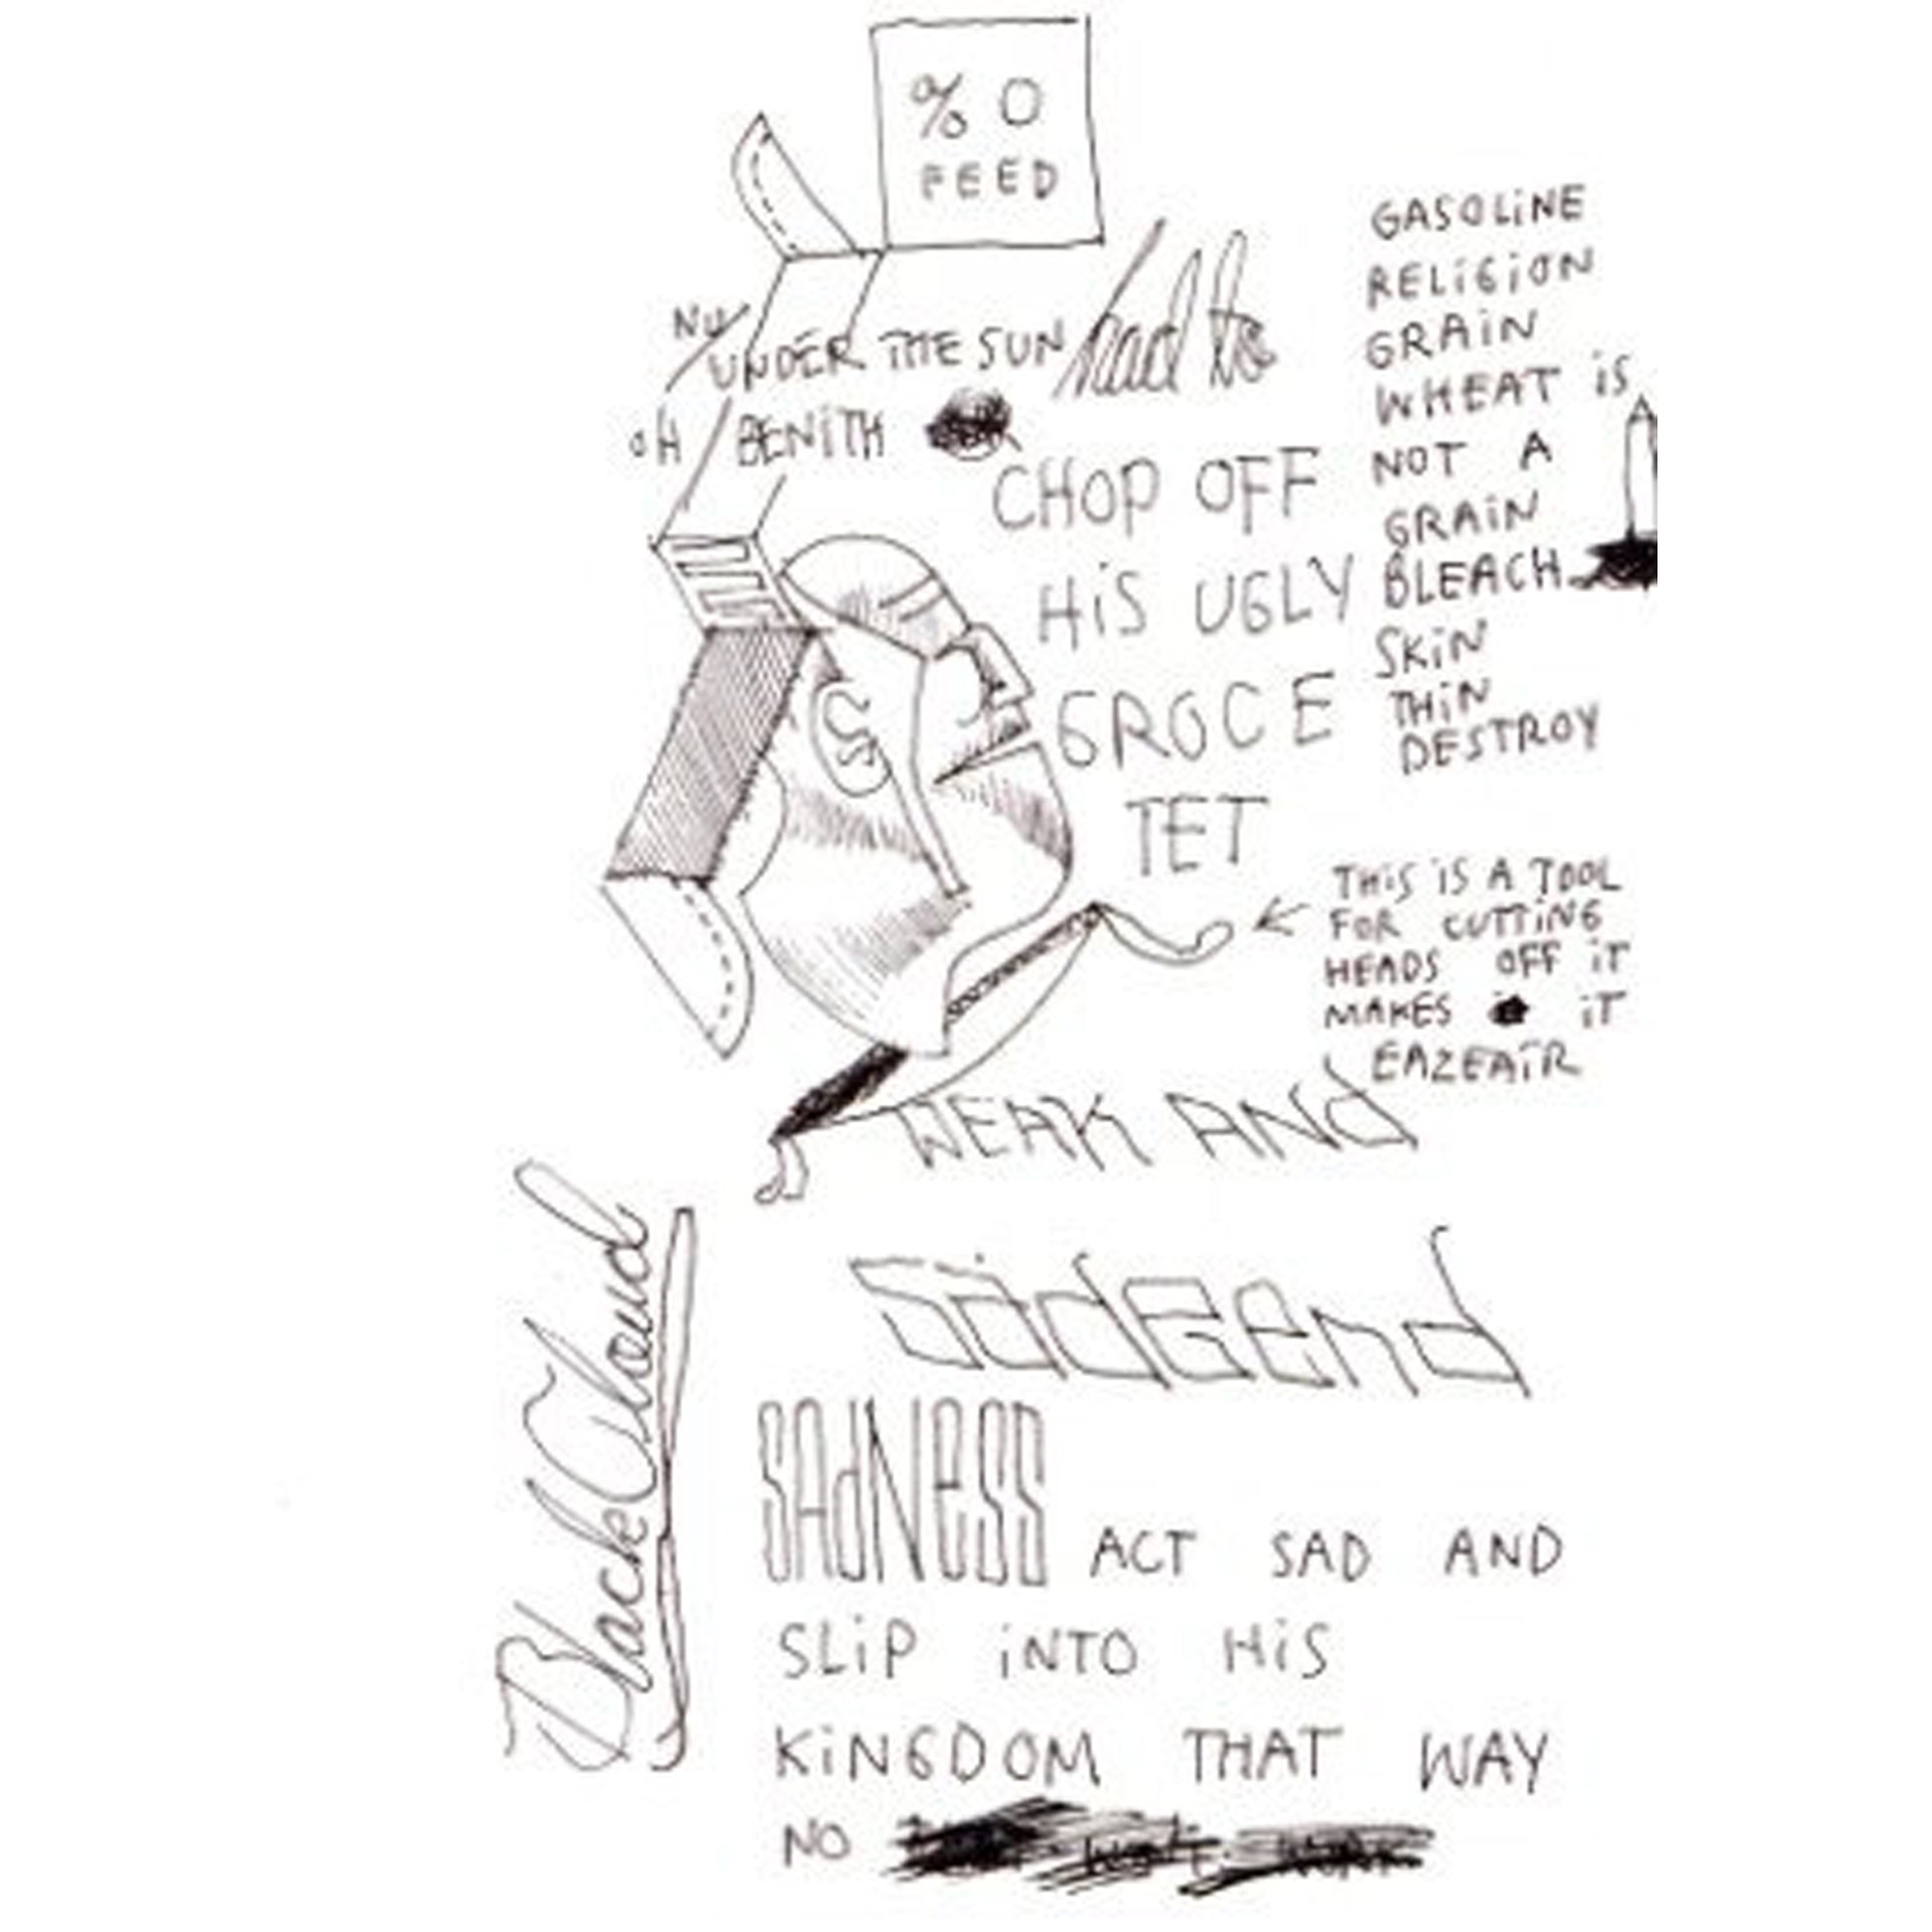 % O
FEED
NU
UNDER THE SUN
had to
OH BENITH
CHOP OFF
HiS UGLY
GROCE
TET
GASOLiNE
RELiGiON
GRAiN
WHEAT iS
NOT A
GRAiN
BLEACH
SKiN
THiN
DESTROY
THiS iS A TOOL
FOR CUTTiNG
HEADS OFF iT
MAKES iT
EAZEAiR
WEAK ANd
SadGend
Black Cloud
SAdNeSS ACT SAD AND
SLiP iNTO HiS
KiNGDOM THAT WAY
NO